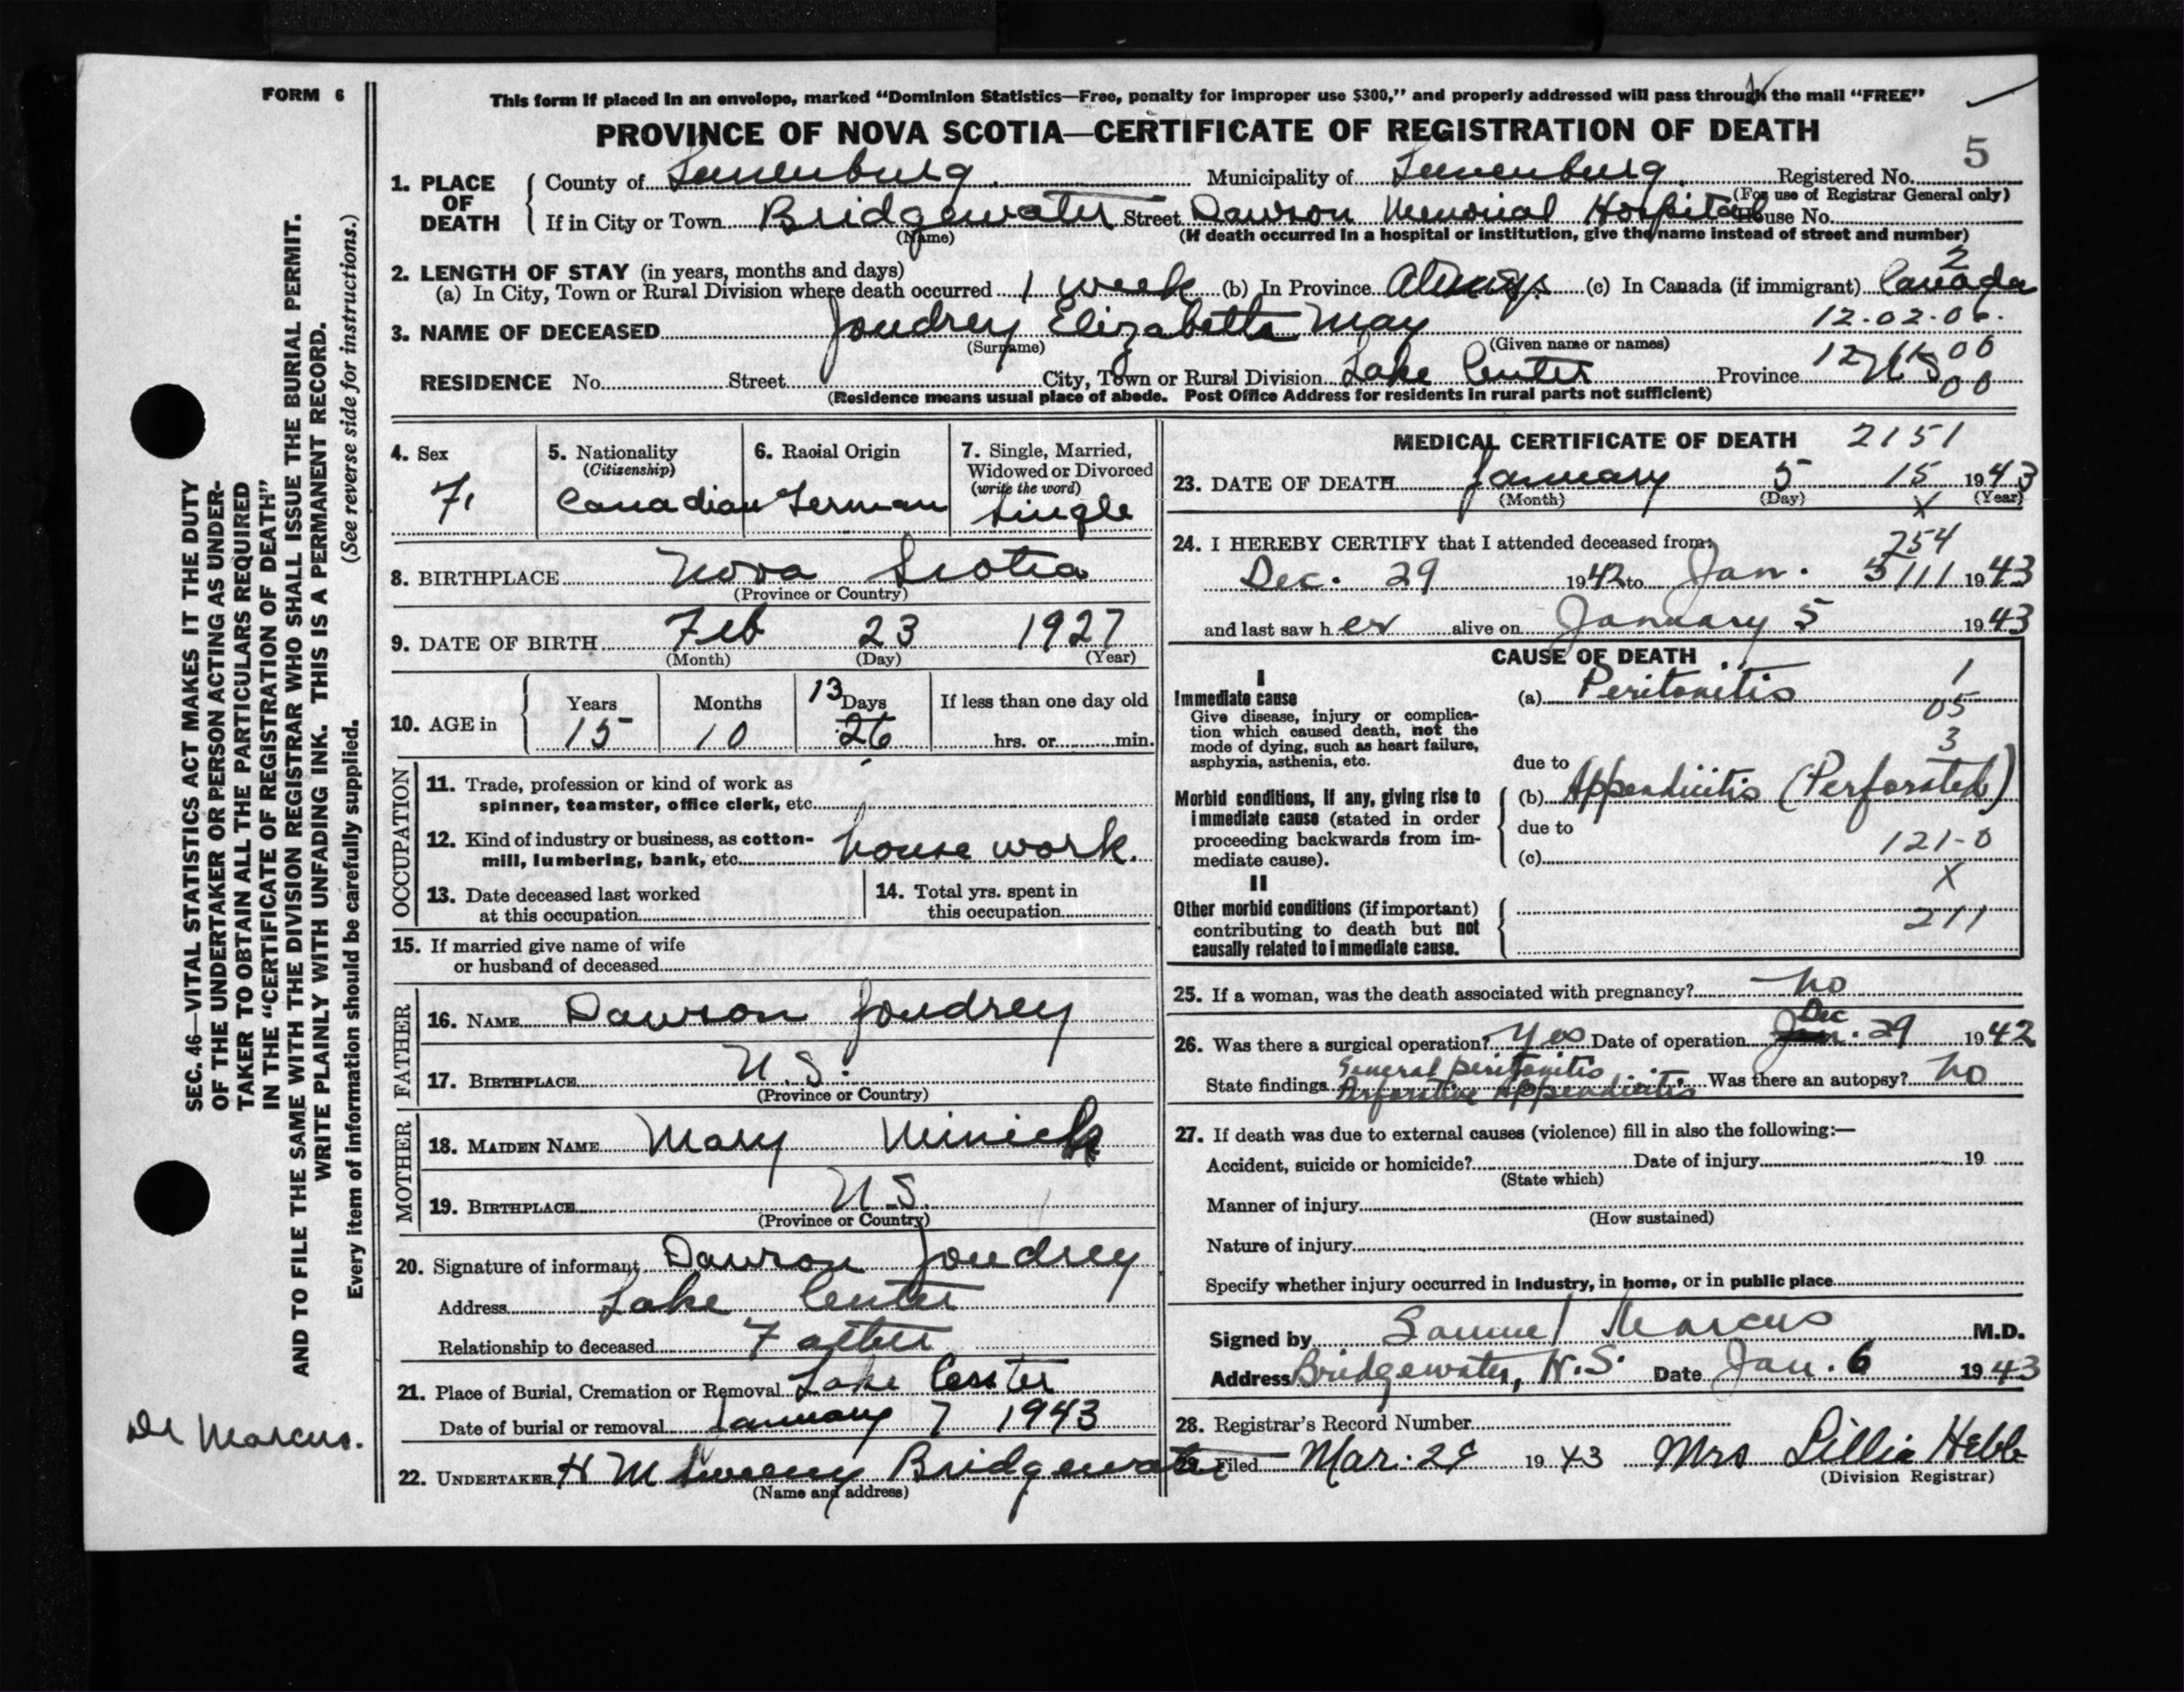 FORM 6
This form if placed in an envelope, marked “Dominion Statistics—Free, penalty for improper use $300,” and properly addressed will pass through the mail “FREE”
PROVINCE OF NOVA SCOTIA—CERTIFICATE OF REGISTRATION OF DEATH
5
1. PLACE OF DEATH
County of Lunenburg Municipality of Lunenburg Registered No.
(For use of Registrar General only)
If in City or Town Bridgewater Street Dawson Memorial Hospital House No.
(Name) (If death occurred in a hospital or institution, give the name instead of street and number)
2. LENGTH OF STAY (in years, months and days) 2
(a) In City, Town or Rural Division where death occurred 1 week (b) In Province Always (c) In Canada (if immigrant) Canada
3. NAME OF DECEASED Joudrey Elizabeth May 12-02-06.
(Surname) (Given name or names)
12 11 00
RESIDENCE No. Street City, Town or Rural Division Lake Center Province N S 00
(Residence means usual place of abode. Post Office Address for residents in rural parts not sufficient)
4. Sex
F.
5. Nationality
(Citizenship)
Canadian
6. Racial Origin
German
7. Single, Married,
Widowed or Divorced
(write the word)
Single
8. BIRTHPLACE Nova Scotia
(Province or Country)
9. DATE OF BIRTH Feb 23 1927
(Month) (Day) (Year)
10. AGE in
Years Months 13 Days If less than one day old
15 10 26 hrs. or min.
OCCUPATION
11. Trade, profession or kind of work as
spinner, teamster, office clerk, etc.
12. Kind of industry or business, as cotton-
mill, lumbering, bank, etc. house work.
13. Date deceased last worked
at this occupation
14. Total yrs. spent in
this occupation
15. If married give name of wife
or husband of deceased
FATHER
16. NAME Dawson Joudrey
17. BIRTHPLACE N.S.
(Province or Country)
MOTHER
18. MAIDEN NAME Mary Minick
19. BIRTHPLACE N.S.
(Province or Country)
20. Signature of informant Dawson Joudrey
Address Lake Center
Relationship to deceased Father
21. Place of Burial, Cremation or Removal Lake Center
Date of burial or removal January 7 1943
22. UNDERTAKER H M Sweeny Bridgewater
(Name and address)
MEDICAL CERTIFICATE OF DEATH 2151
23. DATE OF DEATH January 5 15 1943
(Month) (Day) X (Year)
24. I HEREBY CERTIFY that I attended deceased from: 254
Dec. 29 1942 to Jan. 5 111 1943
and last saw her alive on January 5 1943
CAUSE OF DEATH
I
Immediate cause
Give disease, injury or complica-
tion which caused death, not the
mode of dying, such as heart failure,
asphyxia, asthenia, etc.
(a) Peritonitis 1
05
3
due to
Morbid conditions, if any, giving rise to
immediate cause (stated in order
proceeding backwards from im-
mediate cause).
(b) Appendicitis (Perforated)
due to
(c) 121-0
X
II
Other morbid conditions (if important)
contributing to death but not
causally related to immediate cause.
211
25. If a woman, was the death associated with pregnancy? No
26. Was there a surgical operation? Yes Date of operation Jan. Dec 29 1942
State findings General peritonitis
Perforative Appendicitis Was there an autopsy? No
27. If death was due to external causes (violence) fill in also the following:—
Accident, suicide or homicide? Date of injury 19
(State which)
Manner of injury
(How sustained)
Nature of injury
Specify whether injury occurred in industry, in home, or in public place
Signed by Samuel Marcus M.D.
Address Bridgewater, N.S. Date Jan. 6 1943
28. Registrar's Record Number
29. Filed Mar. 29 1943 Mrs Lillie Hebb
(Division Registrar)
SEC. 46—VITAL STATISTICS ACT MAKES IT THE DUTY
OF THE UNDERTAKER OR PERSON ACTING AS UNDER-
TAKER TO OBTAIN ALL THE PARTICULARS REQUIRED
IN THE “CERTIFICATE OF REGISTRATION OF DEATH”
AND TO FILE THE SAME WITH THE DIVISION REGISTRAR WHO SHALL ISSUE THE BURIAL PERMIT.
WRITE PLAINLY WITH UNFADING INK. THIS IS A PERMANENT RECORD.
Every item of information should be carefully supplied. (See reverse side for instructions.)
Dr Marcus.